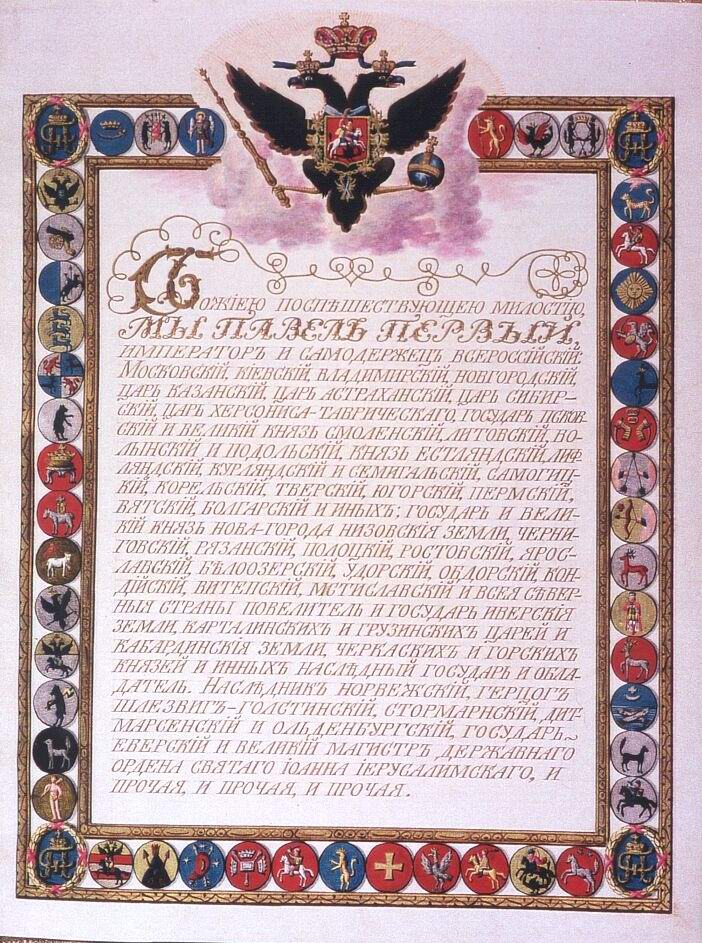 Божіею поспѣшествующею милостію,
МЫ ПАВЕЛЪ ПЕРВЫЙ,
ИМПЕРАТОРЪ И САМОДЕРЖЕЦЪ ВСЕРОССІЙСКІЙ:
Московскій, Кіевскій, Владимирскій, Новгородскій,
Царь Казанскій, Царь Астраханскій, Царь Сибир-
скій, Царь Херсониса-Таврическаго, Государь Псков-
скій и Великій Князь Смоленскій, Литовскій, Во-
лынскій, и Подольскій, Князь Естляндскій, Лиф-
ляндскій, Курляндскій и Семигальскій, Самогиц-
кій, Корельскій, Тверскій, Югорскій, Пермскій,
Вятскій, Болгарскій и иныхъ; Государь и Вели-
кій Князь Нова-города Низовскія земли, Черни-
говскій, Рязанскій, Полоцкій, Ростовскій, Ярос-
лавскій, Бѣлоозерскій, Удорскій, Обдорскій, Кон-
дійскій, Витепскій, Мстиславскій и всея Сѣвер-
ныя страны Повелитель и Государь Иверскія
земли, Карталинскихъ и Грузинскихъ Царей и
Кабардинскія земли, Черкаскихъ и Горскихъ
Князей и инныхъ наслѣдный Государь и Обла-
датель. Наслѣдникъ Норвежскій, Герцогъ
Шлезвигъ-Голстинскій, Стормарнскій, Дит-
марсенскій и Ольденбургскій, Государь
Еверскій и Великій Магистръ Державнаго
Ордена Святаго Іоанна Іерусалимскаго, и
прочая, и прочая, и прочая.